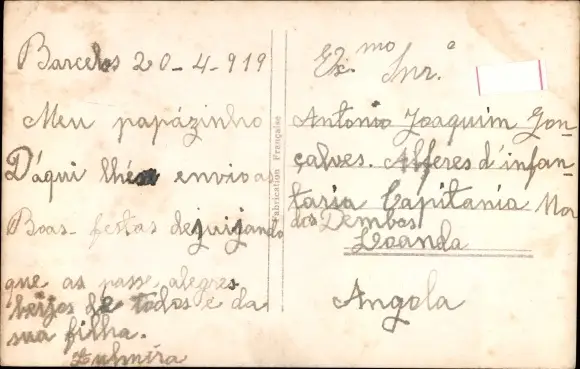 Barcelos 20-4-919
Meu papázinho
D'aqui lhe envio as
Boas-festas dejuijando
que as passe alegres
beijos de todos e da
sua filha.
Fabrication Française
Ex.mo Snr.e
Antonio Joaquim Gon-
çalves. Alferes d'infan-
taria Capitania Mor
dos Dembos
Loanda
Angola